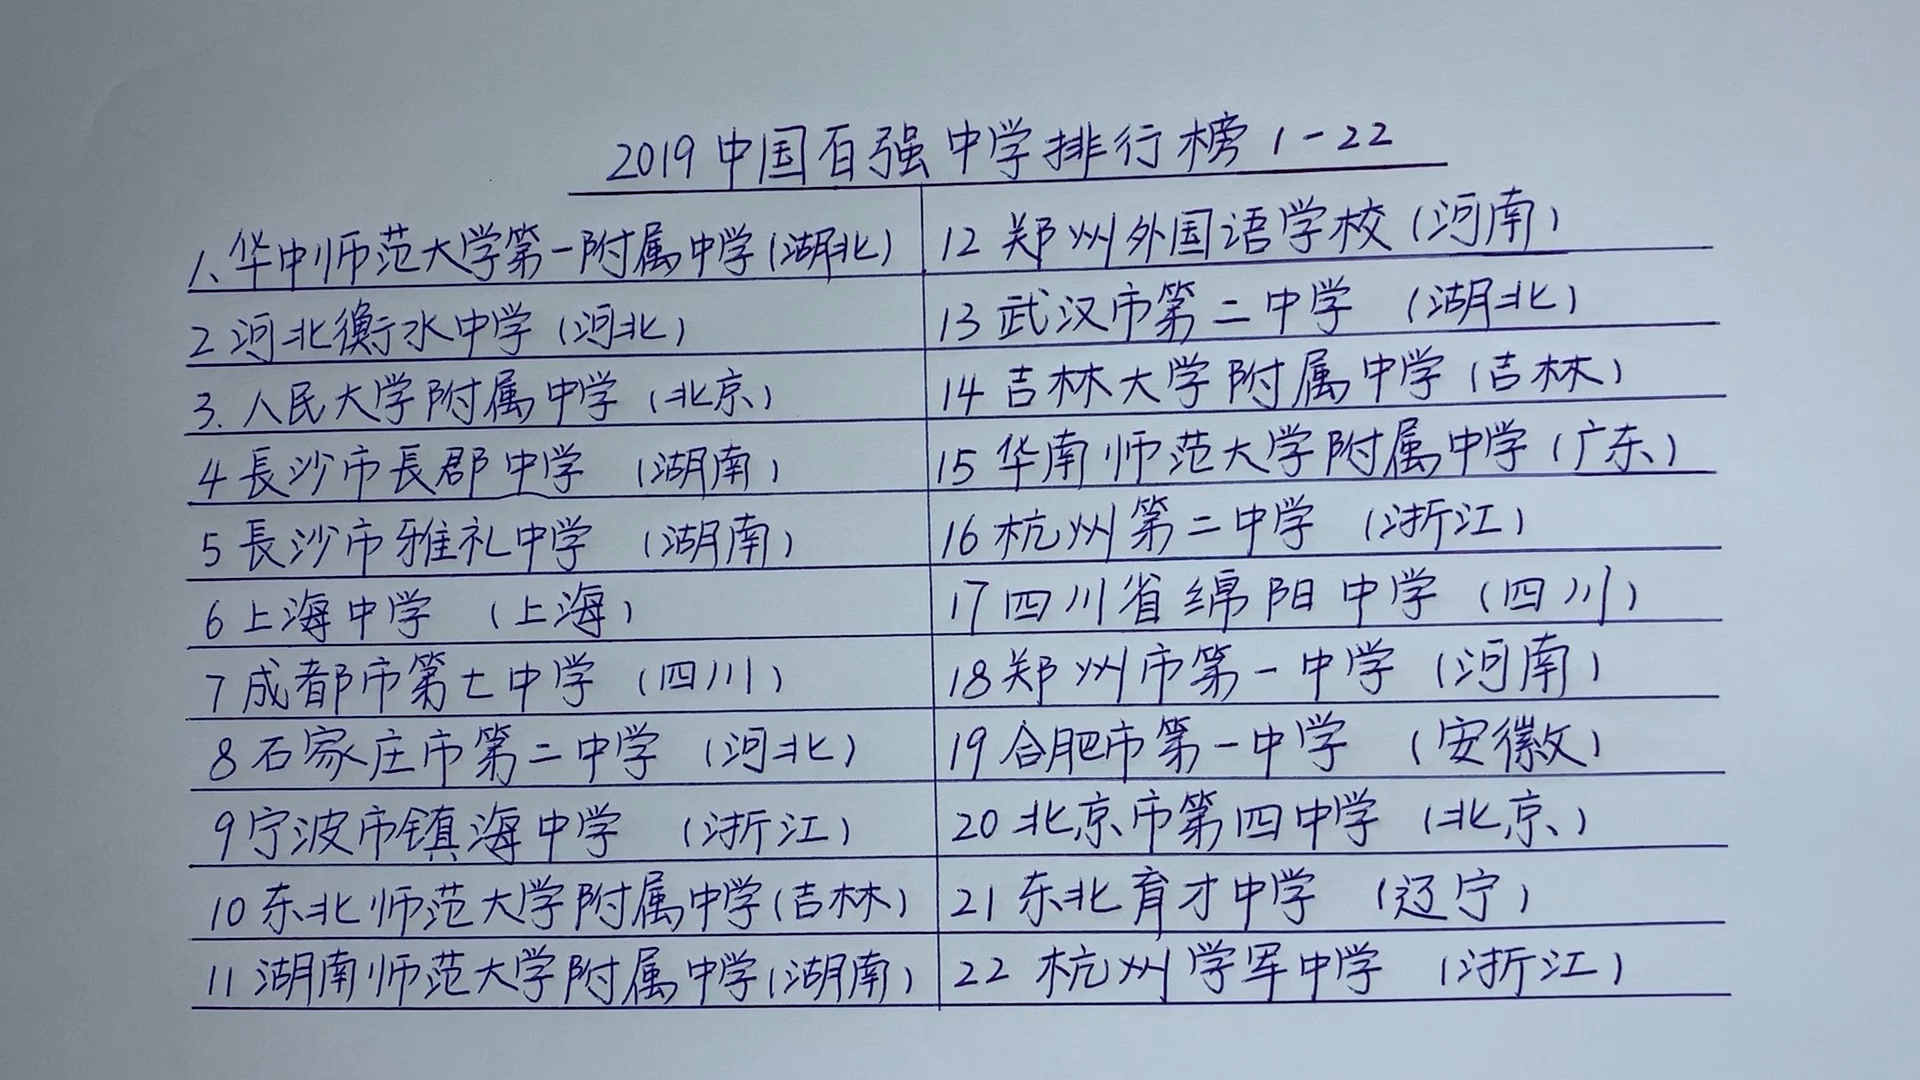 2019中国百强中学排行榜1-22
1、华中师范大学第一附属中学(湖北)
2河北衡水中学(河北)
3.人民大学附属中学(北京)
4長沙市長郡中学(湖南)
5長沙市雅礼中学(湖南)
6上海中学(上海)
7成都市第七中学(四川)
8石家庄市第二中学(河北)
9宁波市镇海中学(浙江)
10东北师范大学附属中学(吉林)
11湖南师范大学附属中学(湖南)
12郑州外国语学校(河南)
13武汉市第二中学(湖北)
14吉林大学附属中学(吉林)
15华南师范大学附属中学(广东)
16杭州第二中学(浙江)
17四川省绵阳中学(四川)
18郑州市第一中学(河南)
19合肥市第一中学(安徽)
20北京市第四中学(北京)
21东北育才中学(辽宁)
22杭州学军中学(浙江)